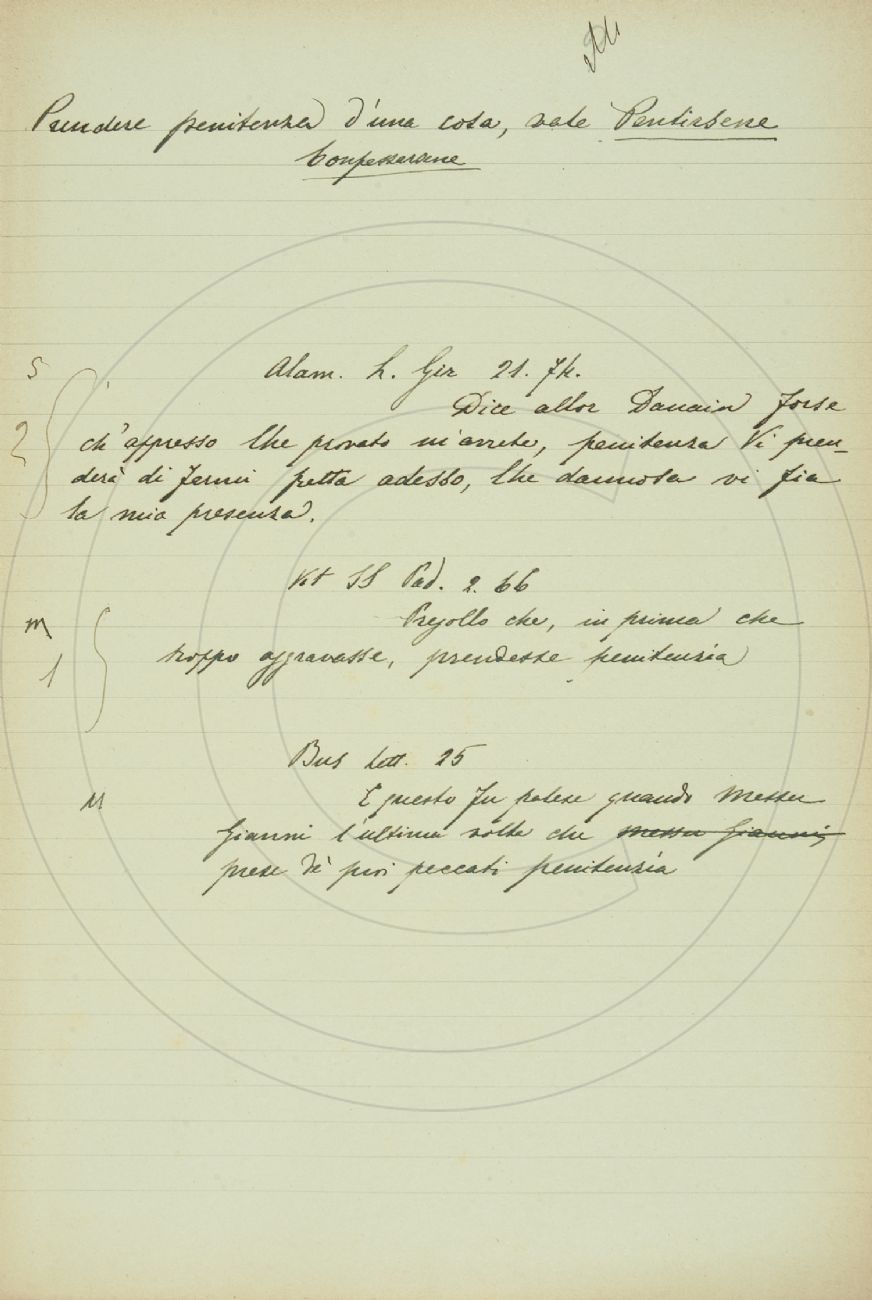 Prendere penitenza d'una cosa, vale Pentirsene
Confessarsene
5
Alam. G. Gir 21. 74.
Dice allor Danain forse
2
ch'appresso Che provato m'avrete, penitenza Vi pren-
derà di fermi fretta adesso, Che dannosa vi fia
la mia presenza.
Vit SS Pad. 2. 66
Pregollo che, in prima che
m
troppo aggravasse, prendesse penitenzia
1
Bus lett. 25
E questo fu palese quando Messer
M
Gianni l'ultima volta che messer Gianni
prese de' suoi peccati penitenzia